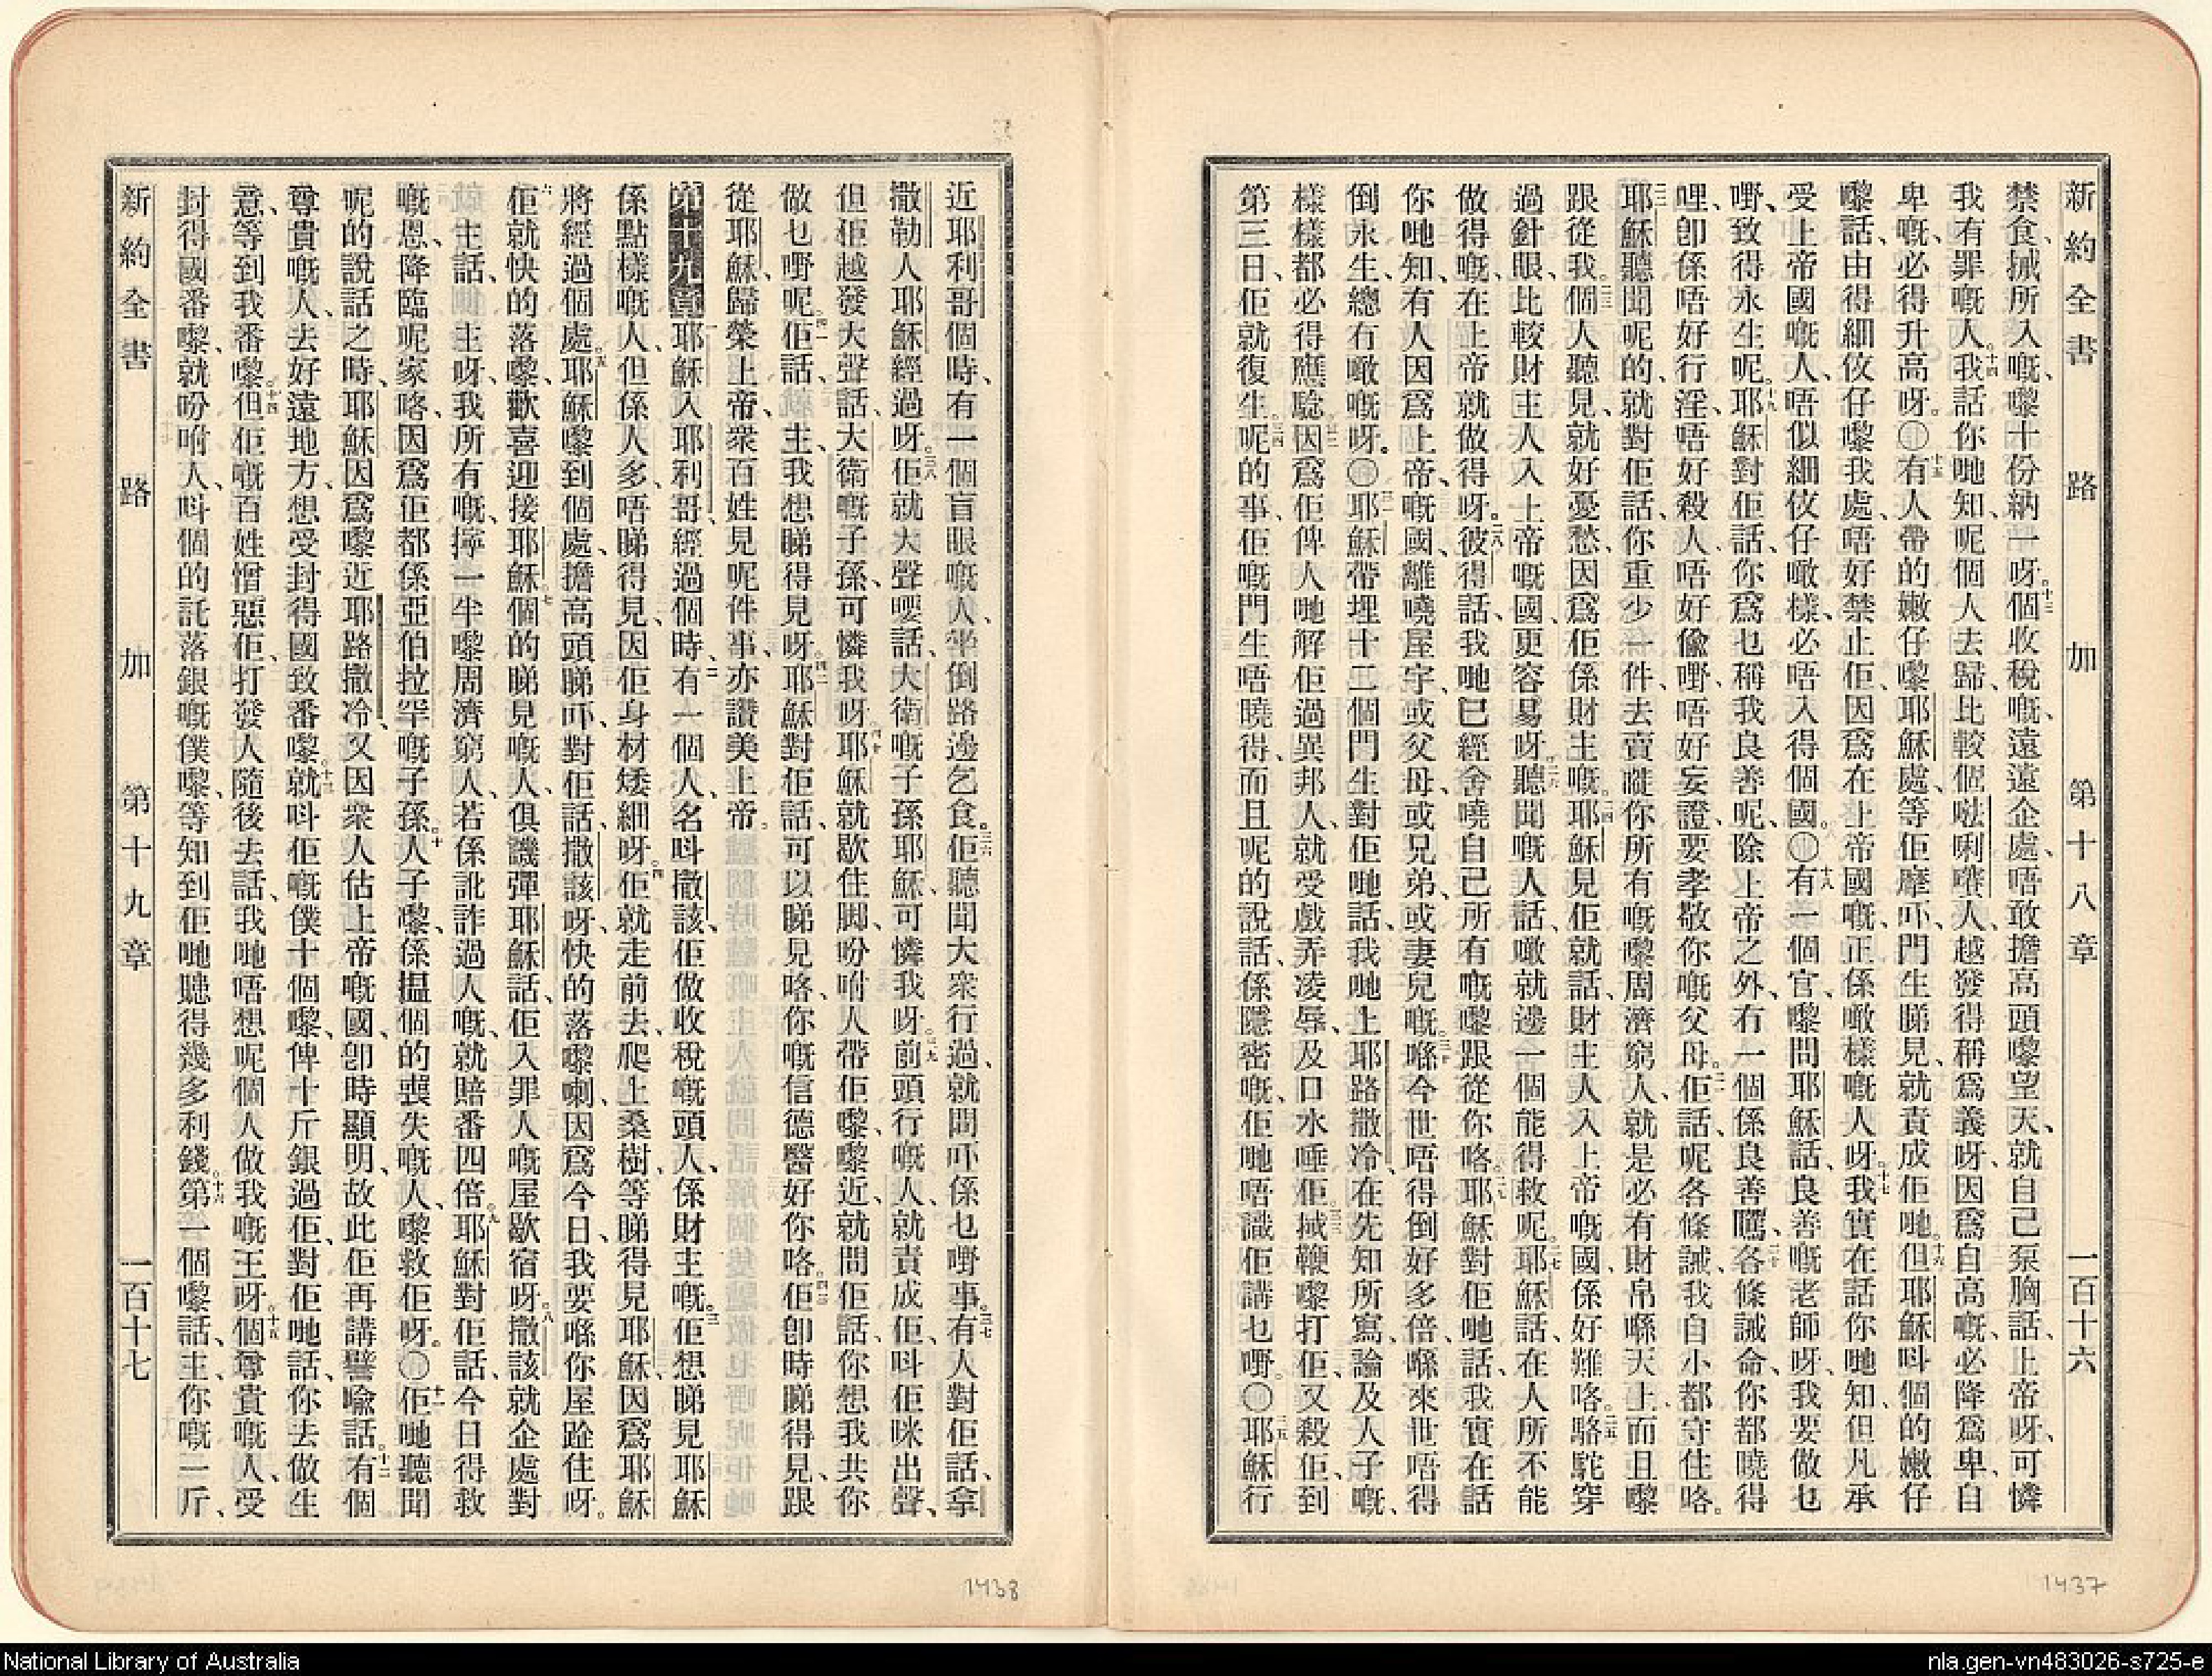 新約全書 路加 第十八章 一百十六
禁食、捄所入嘅、嚟十份納一呀。十三個收稅嘅、遠遠企處、唔敢擔高頭嚟望天、就自己泵胸話、上帝呀、可憐
我有罪嘅人。十四我話你哋知、呢個人去歸、比較個㗇唎㘔人、越發得稱爲義呀、因爲自高嘅、必降爲卑、自
卑嘅、必得升高呀。〇十五有人帶的嫩仔嚟耶穌處、等佢摩吓、門生睇見、就責成佢哋。十六但耶穌呌個的嫩仔
嚟話、由得細伩仔嚟我處、唔好禁止佢、因爲在上帝國嘅、正係噉樣嘅人呀。十七我實在話你哋知、但凡承
受上帝國嘅人、唔似細伩仔噉樣、必唔入得個國。〇十八有一個官、嚟問耶穌話、良善嘅老師呀、我要做乜
嘢、致得永生呢。十九耶穌對佢話、你爲乜稱我良善呢、除上帝之外、冇一個係良善嘅、二十各條誡命、你都曉得
哩、卽係唔好行淫、唔好殺人、唔好偷嘢、唔好妄證、要孝敬你嘅父母。二一佢話、呢各條誡、我自小都守住咯。
二二耶穌聽聞呢的、就對佢話、你重少一件、去賣嗮你所有嘅、嚟周濟窮人、就是必有財帛喺天上、而且嚟
跟從我。二三個人聽見、就好憂愁、因爲佢係財主嘅。二四耶穌見佢就話、財主人入上帝嘅國、係好難咯。二五駱駝穿
過針眼、比較財主人入上帝嘅國、更容易呀。二六聽聞嘅人話、噉就邊一個能得救呢。二七耶穌話、在人所不能
做得嘅、在上帝就做得呀。二八彼得話、我哋已經舍曉自己所有嘅、嚟跟從你咯。二九耶穌對佢哋話、我實在話
你哋知、有人因爲上帝嘅國、離曉屋宇、或父母、或兄弟、或妻兒嘅。三十喺今世唔得倒好多倍、喺來世唔得
倒永生、總冇噉嘅呀。〇三一耶穌帶埋十二個門生對佢哋話、我哋上耶路撒冷、在先知所寫、論及人子嘅、
樣樣都必得應騐。三二因爲佢俾人哋解佢過異邦人、就受戲弄凌辱、及口水唾佢。三三搣鞭嚟打佢、又殺佢、到
第三日、佢就復生。三四呢的事、佢嘅門生唔曉得、而且呢的說話、係隱密嘅、佢哋唔識佢講乜嘢。〇三五耶穌行
近耶利哥個時、有一個盲眼嘅人、坐倒路邊乞食。三六佢聽聞大衆行過、就問吓係乜嘢事。三七有人對佢話、拿
撒勒人耶穌經過呀。三八佢就大聲嗌話、大衛嘅子孫耶穌、可憐我呀。三九前頭行嘅人、就責成佢、呌佢咪出聲、
但佢越發大聲話、大衛嘅子孫、可憐我呀。四十耶穌就歇住脚、吩咐人帶佢嚟、嚟近、就問佢話、你想我共你
做乜嘢呢。四一佢話、主、我想睇得見呀。四二耶穌對佢話、可以睇見咯、你嘅信德醫好你咯。四三佢卽時睇得見、跟
從耶穌、歸榮上帝、衆百姓見呢件事、亦讚美上帝。
第十九章 一耶穌入耶利哥、經過個時、二有一個人、名呌撒該、佢做收稅嘅頭人、係財主嘅。三佢想睇見耶穌
係點樣嘅人、但係人多、唔睇得見、因佢身材矮細呀。四佢就走前去、爬上桑樹、等睇得見耶穌、因爲耶穌
將經過個處。五耶穌嚟到個處、擔高頭睇吓、對佢話、撒該呀、快的落嚟喇、因爲今日、我要喺你屋跧住呀。
六佢就快的落嚟、歡喜迎接耶穌。七個的睇見嘅人、俱譏彈耶穌話、佢入罪人嘅屋歇宿呀。八撒該就企處對
主話、主呀、我所有嘅、擰一半嚟周濟窮人、若係訛詐過人嘅、就賠番四倍。九耶穌對佢話、今日得救
嘅恩、降臨呢家咯、因爲佢都係亞伯拉罕嘅子孫。十人子嚟、係揾個的喪失嘅人、嚟救佢呀。〇十一佢哋聽聞
呢的說話之時、耶穌因爲嚟近耶路撒冷、又因衆人估上帝嘅國、卽時顯明、故此佢再講譬喻話。十二有個
尊貴嘅人、去好遠地方、想受封得國致番嚟。十三就呌佢嘅僕十個嚟、俾十斤銀過佢、對佢哋話、你去做生
意、等到我番嚟。十四但佢嘅百姓憎惡佢、打發人隨後去話、我哋唔想呢個人做我嘅王呀。十五個尊貴嘅人、受
封得國番嚟、就吩咐人、呌個的託落銀嘅僕嚟、等知到佢哋聽得幾多利錢。十六第一個嚟話、主、你嘅一斤、
新約全書 路加 第十九章 一百十七
1438
1437
National Library of Australia
nla.gen-vn483026-s725-e